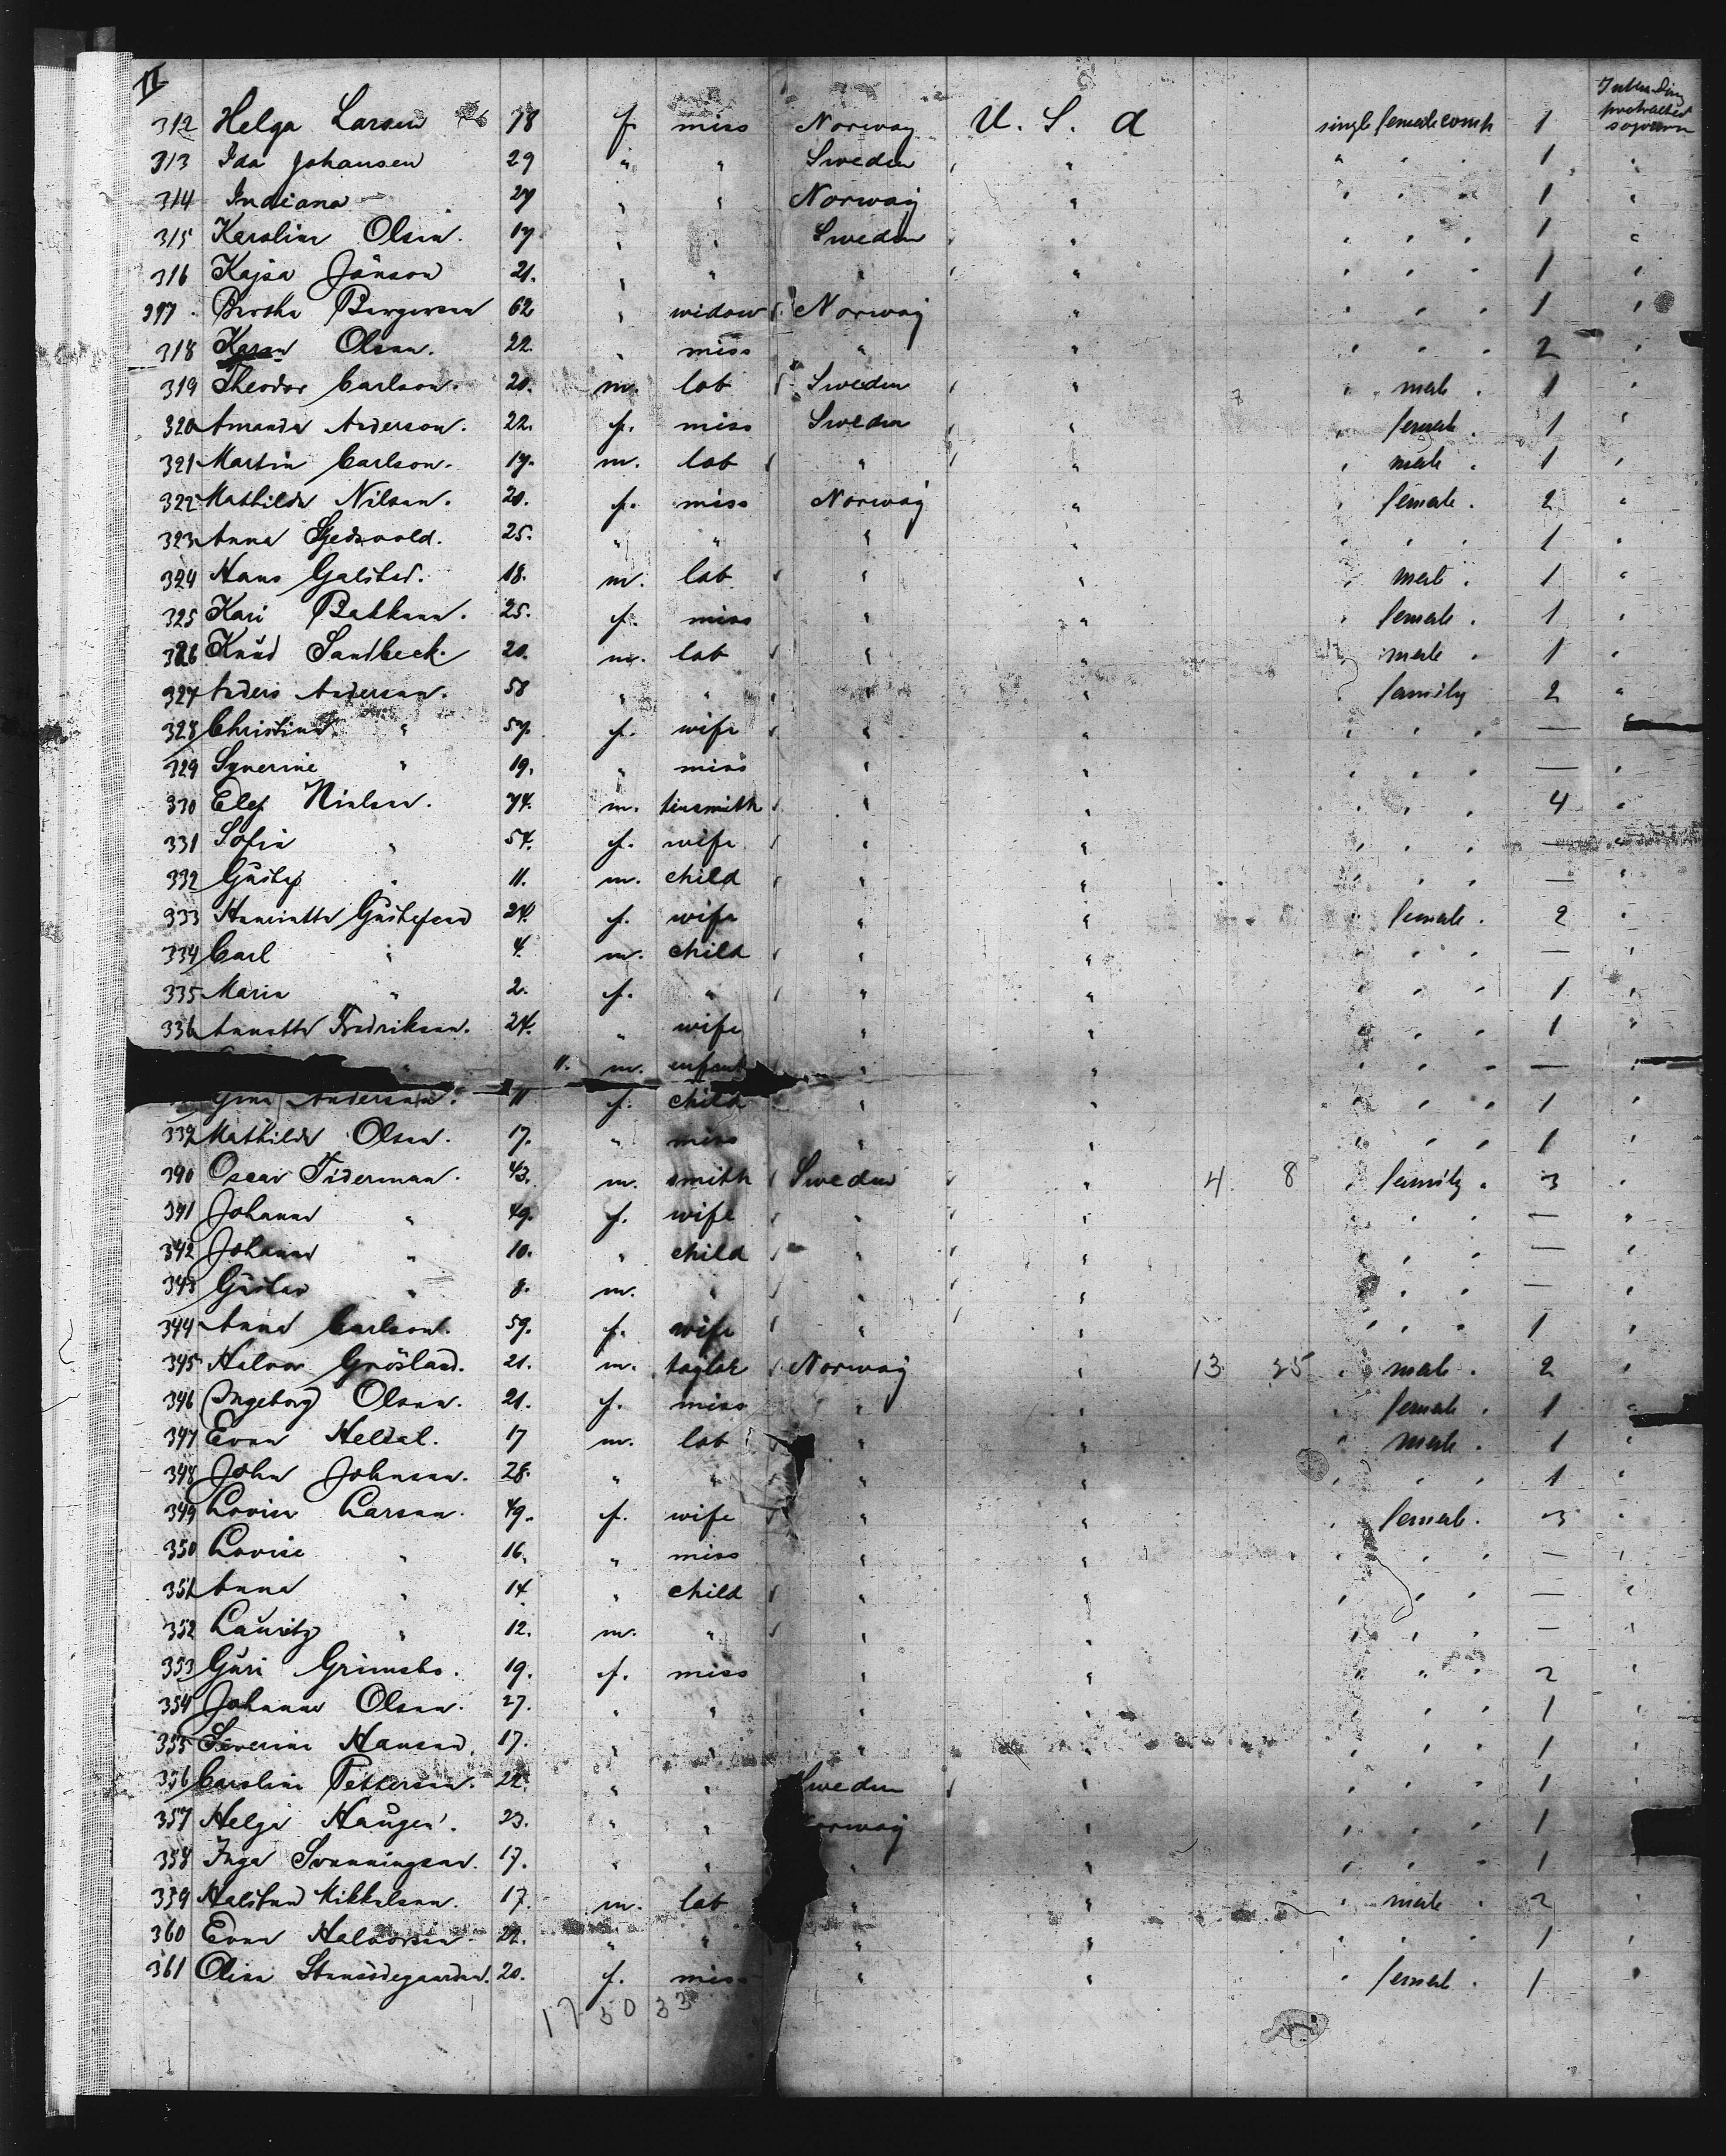 II Intending protracted sojourn
312 Helga Larsen 18 f. miss Norway U. S. a single female comp 1
313 Ida Johansen 29 " " Sweden " " " " 1 "
314 Indiana 27 " " Norway " " " " 1 "
315 Karoline Olsen. 17 " " Sweden " " " " 1 "
316 Kajsa Jönson 21. " " " " " " " 1 "
317 Bertha Bergersen 62 " widow Norway " " " " 1 "
318 Karen Olsen. 22. " miss " " " " " 2 "
319 Theodor Carlson. 20. m. lab Sweden " " male " 1 "
320 Amanda Anderson. 22. f. miss Sweden " " female. 1 "
321 Martin Carlson. 17. m. lab " " " male " 1 "
322 Mathilde Nilsen. 20. f. miss Norway " " female. 2 "
323 Anna 25. " " " " " " " 1 "
324 Hans Galsted. 18. m. lab " " " male. 1 "
325 Kari Bakken. 25. f. miss " " " female. 1 "
326 Knud Sandbeck. 20. m. lab " " " male " 1 "
327 Anders Andersen. 58 " " " " " family 2 "
328 Christine " 57. f. wife " " " " " — "
329 Synerine " 19. " miss " " " " " — "
330 Elef Nielsen. 74. m. tinsmith " " " " " 4 "
331 Sofie " 54. f. wife " " " " " — "
332 Gustef " 11. m. child " " " " " — "
333 Henriette Gustefsen 24. f. wife " " " female. 2 "
334 Carl " 4. m. child " " " " " — "
335 Marie " 2. f. " " " " " " 1 "
336 Annette Fredriksen. 24. " wife " " " " " 1 "
" 11. m. infant " " " " " — "
Gina Andersen. 11 f. child " " " " " 1 "
339 Mathilde Olsen. 17. " miss " " " " " 1 "
340 Oscar Tiderman. 43. m. smith Sweden " 4 8 " family " 3 "
341 Johanne " 49. f. wife " " " " " — "
342 Johanne " 10. " child " " " " " — "
343 Gustav " 8. m. " " " " " " — "
344 Anna Carlson. 59. f. wife " " " " " 1 "
345 Halvor Grösland. 21. m. taylor Norway " 13 35 " male. 2 "
346 Ingeborg Olsen. 21. f. miss " " " female. 1 "
347 Even Heldal. 17 m. lab " " " male. 1 "
348 John Johnsen. 28. " " " " " " " 1 "
349 Lovise Larsen. 49. f. wife " " " female. 3 "
350 Lovise " 16. " miss " " " " " — "
351 Anna " 14. " child " " " " " — "
352 Lauritz " 12. m. " " " " " " — "
353 Guri Grimsbo. 19. f. miss " " " " " 2 "
354 Johanne Olsen. 27. " " " " " " " 1 "
355 Severine Hansen. 17. " " " " " " " 1 "
356 Caroline Pettersen. 22. " " Sweden " " " " 1 "
357 Helge Haugen. 23. " " Norway " " " " 1 "
358 Inga Svenningsen. 17. " " " " " " " 1 "
359 Halsten Mikkelsen. 17. m. lab " " " male " 2 "
360 Even Halvorsen. 22. " " " " " " " 1 "
361 Olina 20. f. miss " " " female. 1 "
17 50 33